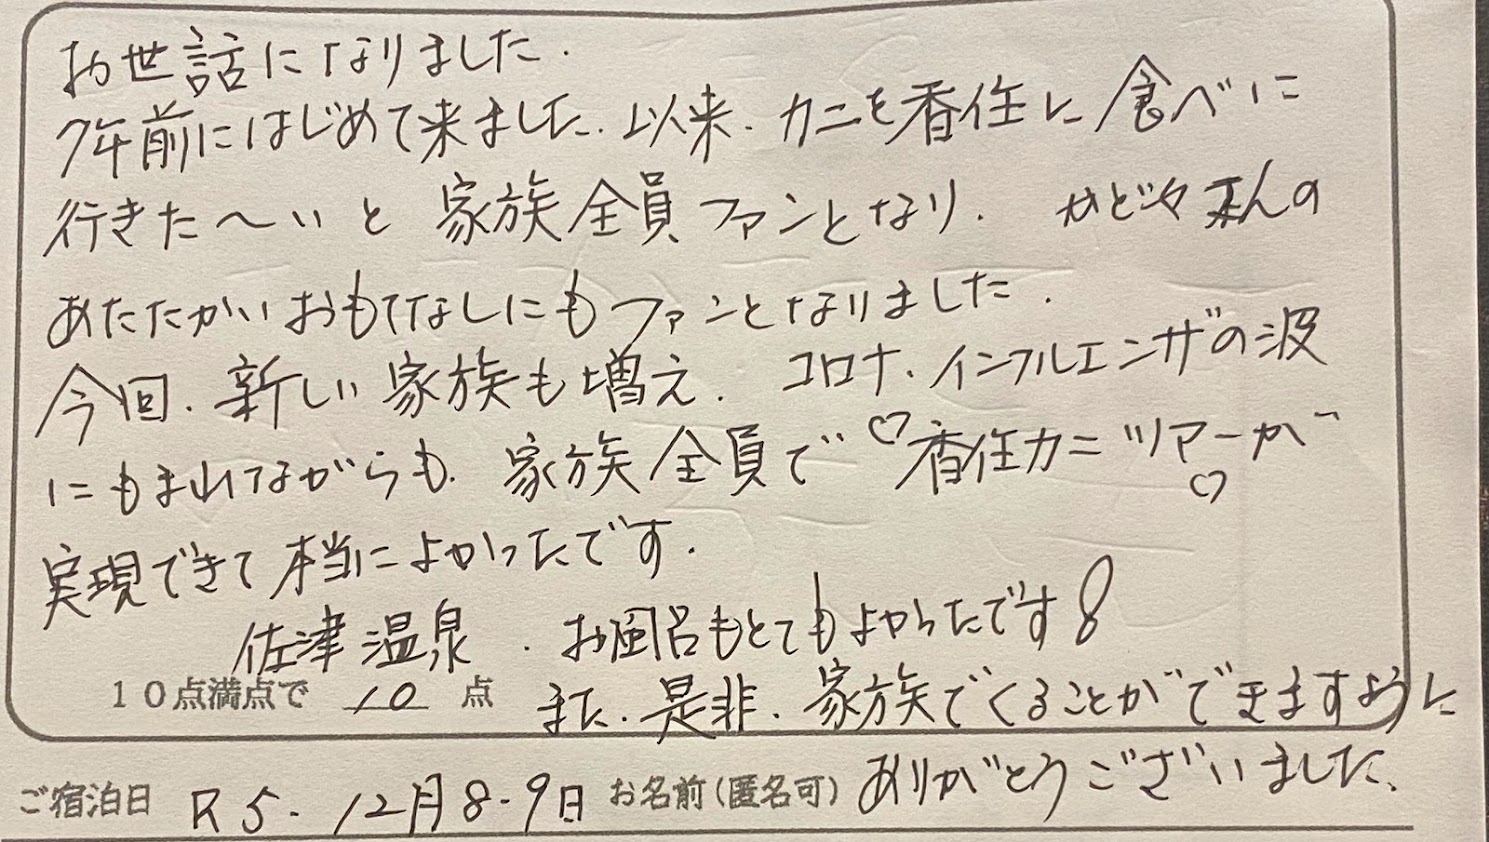 お世話になりました.
7年前にはじめて来ました.以来.カニを香住に食べに
行きた〜いと家族全員ファンとなり.やど々さんの
あたたかいおもてなしにもファンとなりました.
今回.新しい家族も増え.コロナ.インフルエンザの波
にもまれてながらも.家族全員で♡香住カニツアー♡が
実現できて本当によかったです.
佐津温泉.お風呂もとてもよかったです!
10点満点で 10 点 また.是非.家族でくることができますように
ご宿泊日 R5.12月8.9日 お名前(匿名可) ありがとうございました.